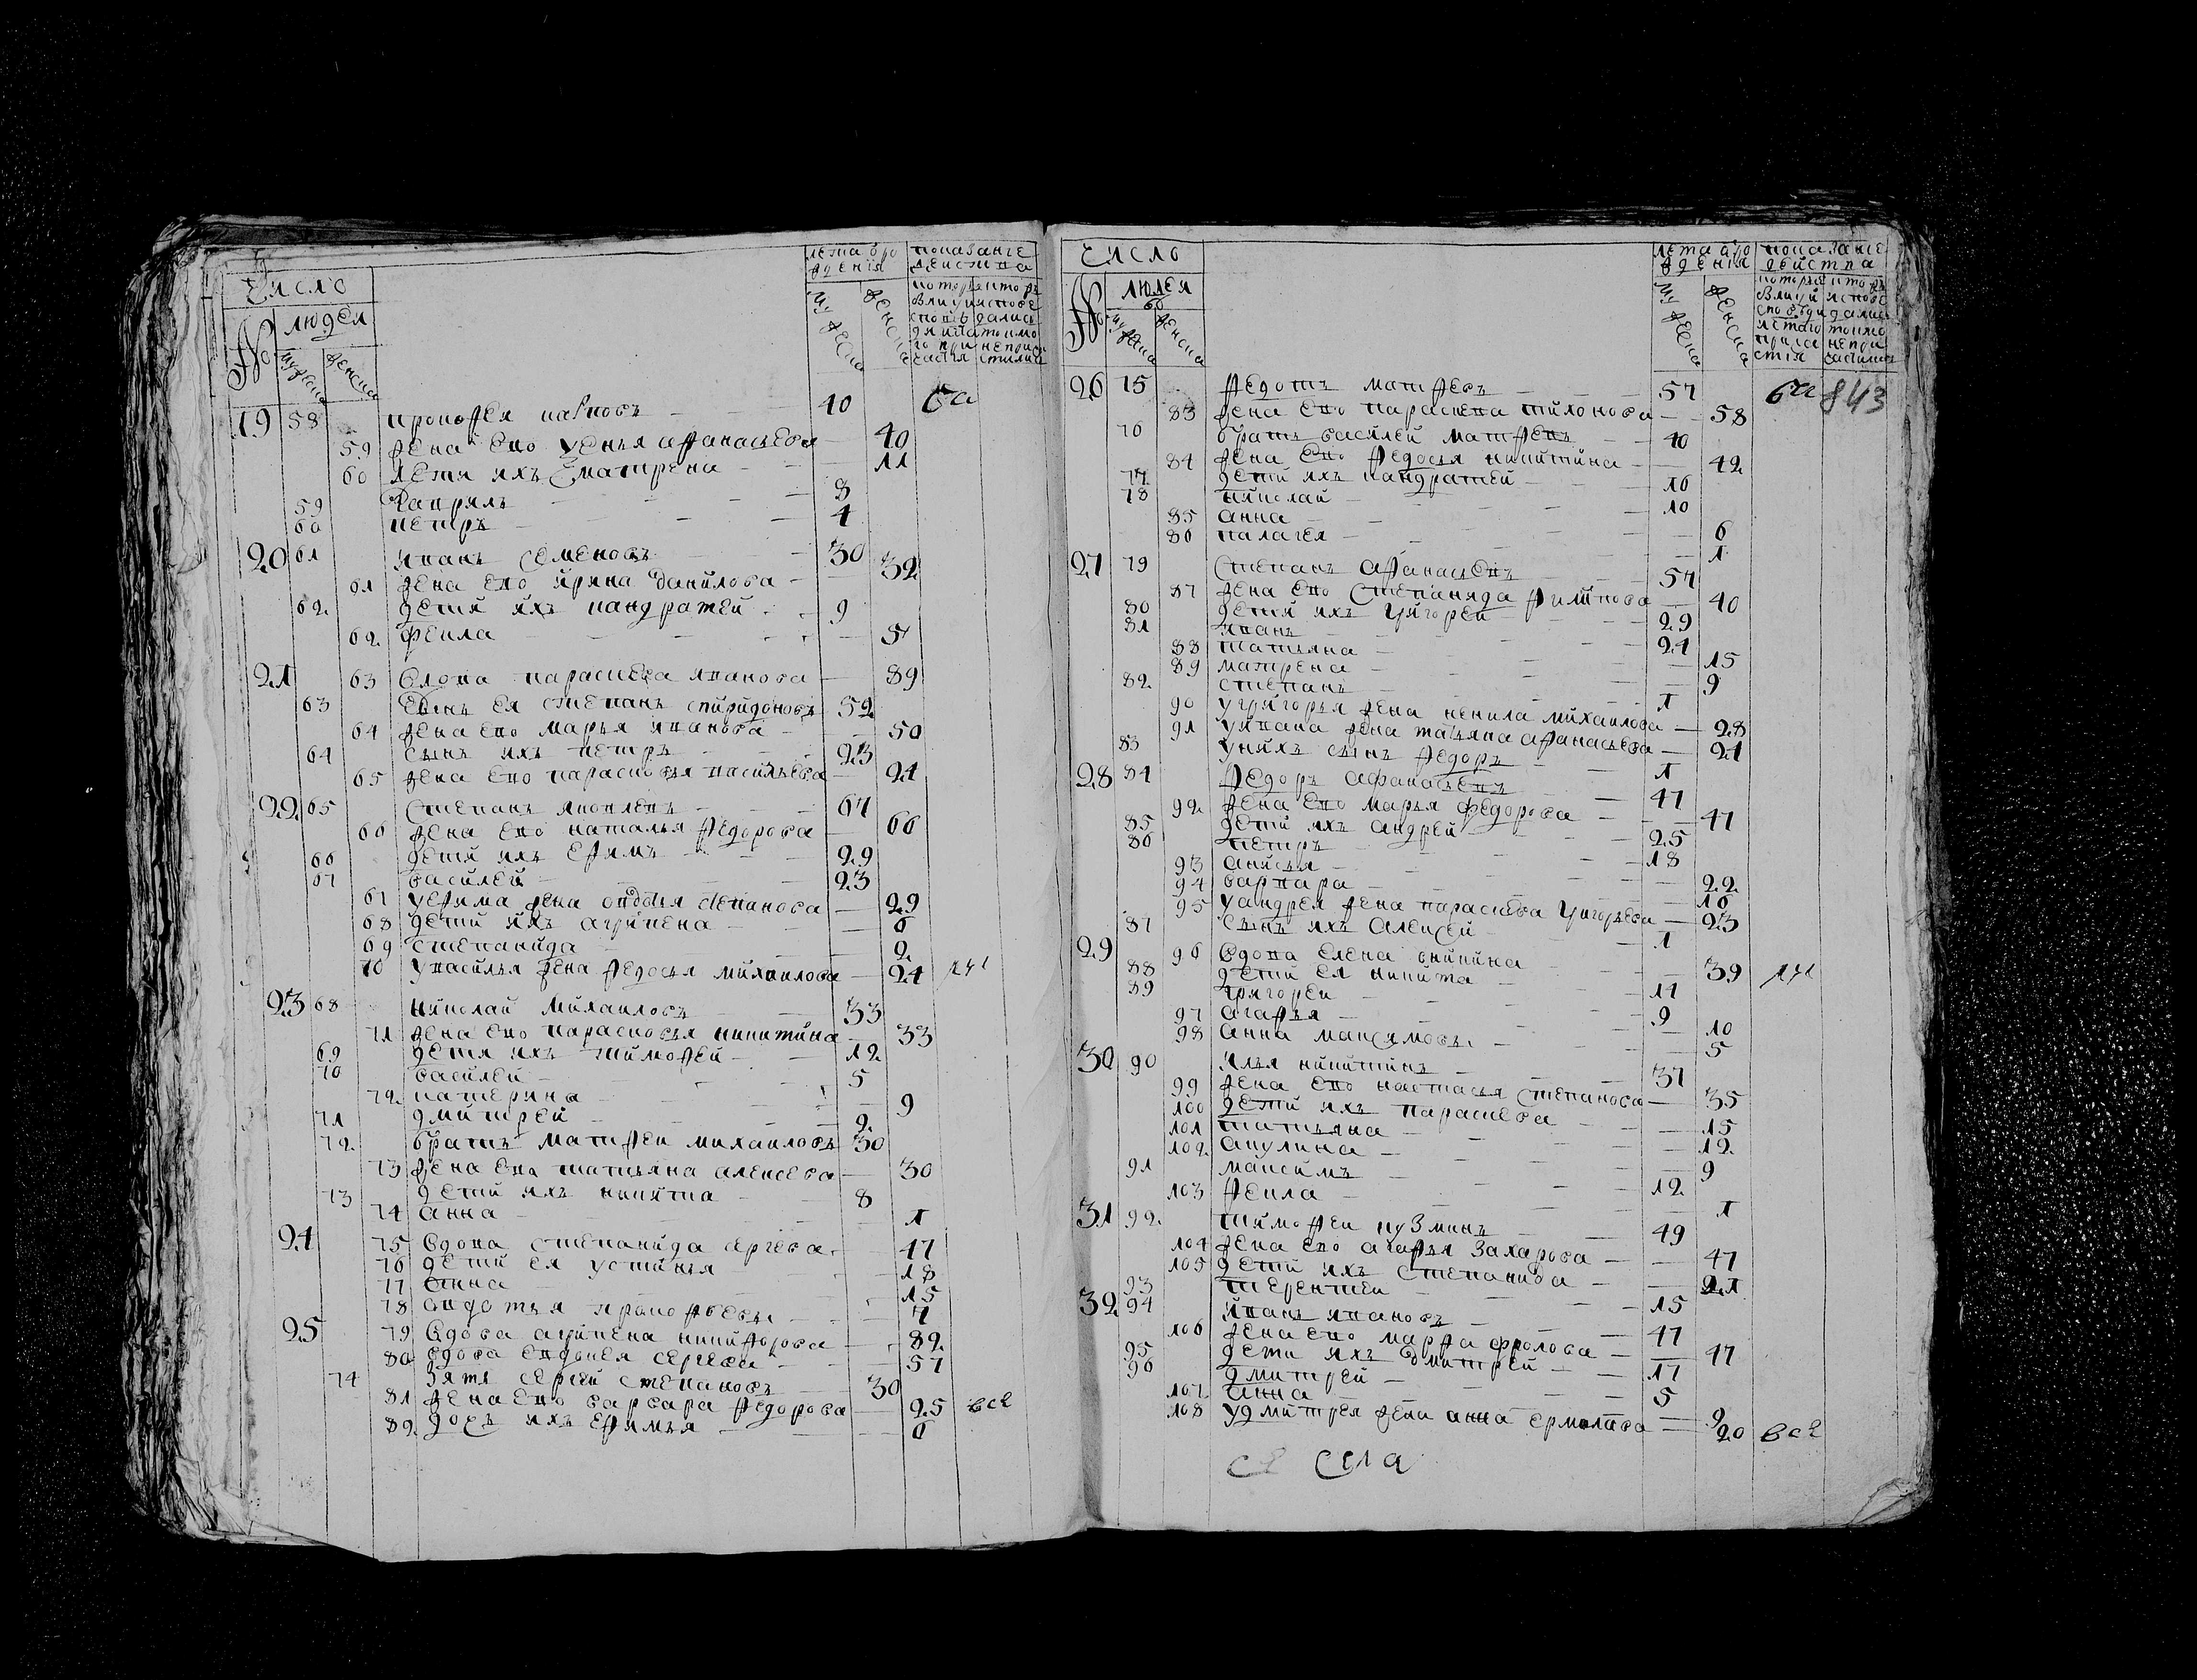 Число
№ людей
мужеска женска
лета врождения
мужеска женска
показание действа
19 58 Прокофей Карповъ 40
59 жена ево Уенья Афанасьева 40
60 дети ихъ Матрена 11
59 Гаврилъ 8
60 Петръ 4
20 61 Иванъ Семеновъ 30
61 жена ево Ирина Данилова 32
62 дети ихъ Кандратей 9
62 Фекла 5
21 63 вдова Парасковья Иванова 89
63 сынъ ея Степанъ Спиридоновъ 52
64 жена ево Марья Иванова 50
64 сынъ ихъ Петръ 23
65 жена ево Парасковья Васильева 24
22 65 Степанъ Яковлевъ 67
66 жена ево Наталья Федорова 66
66 дети ихъ Ефимъ 29
67 Василей 23
67 у Ефима жена Овдотья Степанова 29
68 дети ихъ Агрипена 6
69 Степанида 2
70 у Василья жена Федосья Михаилова 24
23 68 Николай Михаиловъ 33
71 жена ево Парасковья Никитина 33
69 дети ихъ Тимофей 12
70 Василей 5
72 Катерина 9
71 Дмитрей 2
72 братъ Матфеи Михаиловъ 30
73 жена ево Татьяна Алексева 30
73 дети ихъ Никита 8
74 Анна 1
24 75 вдова Степанида Сергева 47
76 дети ея Устинья 18
77 Анна 15
78 Овдотья Прокофьевы 7
25 79 вдова Агрипена Никифорова 82
80 вдова Овдокея Сергева 57
74 зять Сергей Степановъ 30
81 жена ево Варвара Федорова 25
82 дочь ихъ Ефимья 6
Число
№ людей
мужеска женска
лета врождения
мужеска женска
показание действа
843
26 75 Федотъ Матфевъ 57
83 жена ево Парасковья Тихонова 58
76 братъ Василей Матфевъ 40
84 жена ево Федосья Никитина 42
77 дети ихъ Кандратей 16
78 Николай 10
85 Анна 6
86 Палагея 1
27 79 Степанъ Афанасьевъ 57
87 жена ево Степанида Филипова 40
80 дети ихъ Григорей 29
81 Иванъ 24
88 Татьяна 15
89 Матрена 9
82 Степанъ 1
90 у Григорья жена Ненила Михаилова 28
91 у Ивана жена Татьяна Афанасьева 24
83 у нихъ сынъ Федоръ 1
28 84 Федоръ Афанасьевъ 47
92 жена ево Марья Федорова 47
85 дети ихъ Андрей 25
86 Петръ 18
93 Анисья 22
94 Варвара 16
95 у Андрея жена Парасковья Григорьева 23
87 сынъ ихъ Алексей 1
29 96 вдова Елена Аникина 39
88 дети ея Никита 11
89 Григореи 9
97 Агафья 10
98 Анна Максимовы 5
30 90 Илья Никитинъ 37
99 жена ево Настасья Степанова 35
100 дети ихъ Парасковья 15
101 Татьяна 12
102 Акулина 9
91 Максимъ 12
103 Фекла 1
31 92 Тимофеи Кузминъ 49
104 жена ево Агафья Захарова 47
105 дети ихъ Степанида 21
93 Терентей 15
32 94 Иванъ Ивановъ 47
106 жена ево Марфа Фролова 47
95 дети ихъ Дмитрей 17
96 Дмитрей 5
107 Анна 9
108 у Дмитрея жена Анна Ермолаева 20